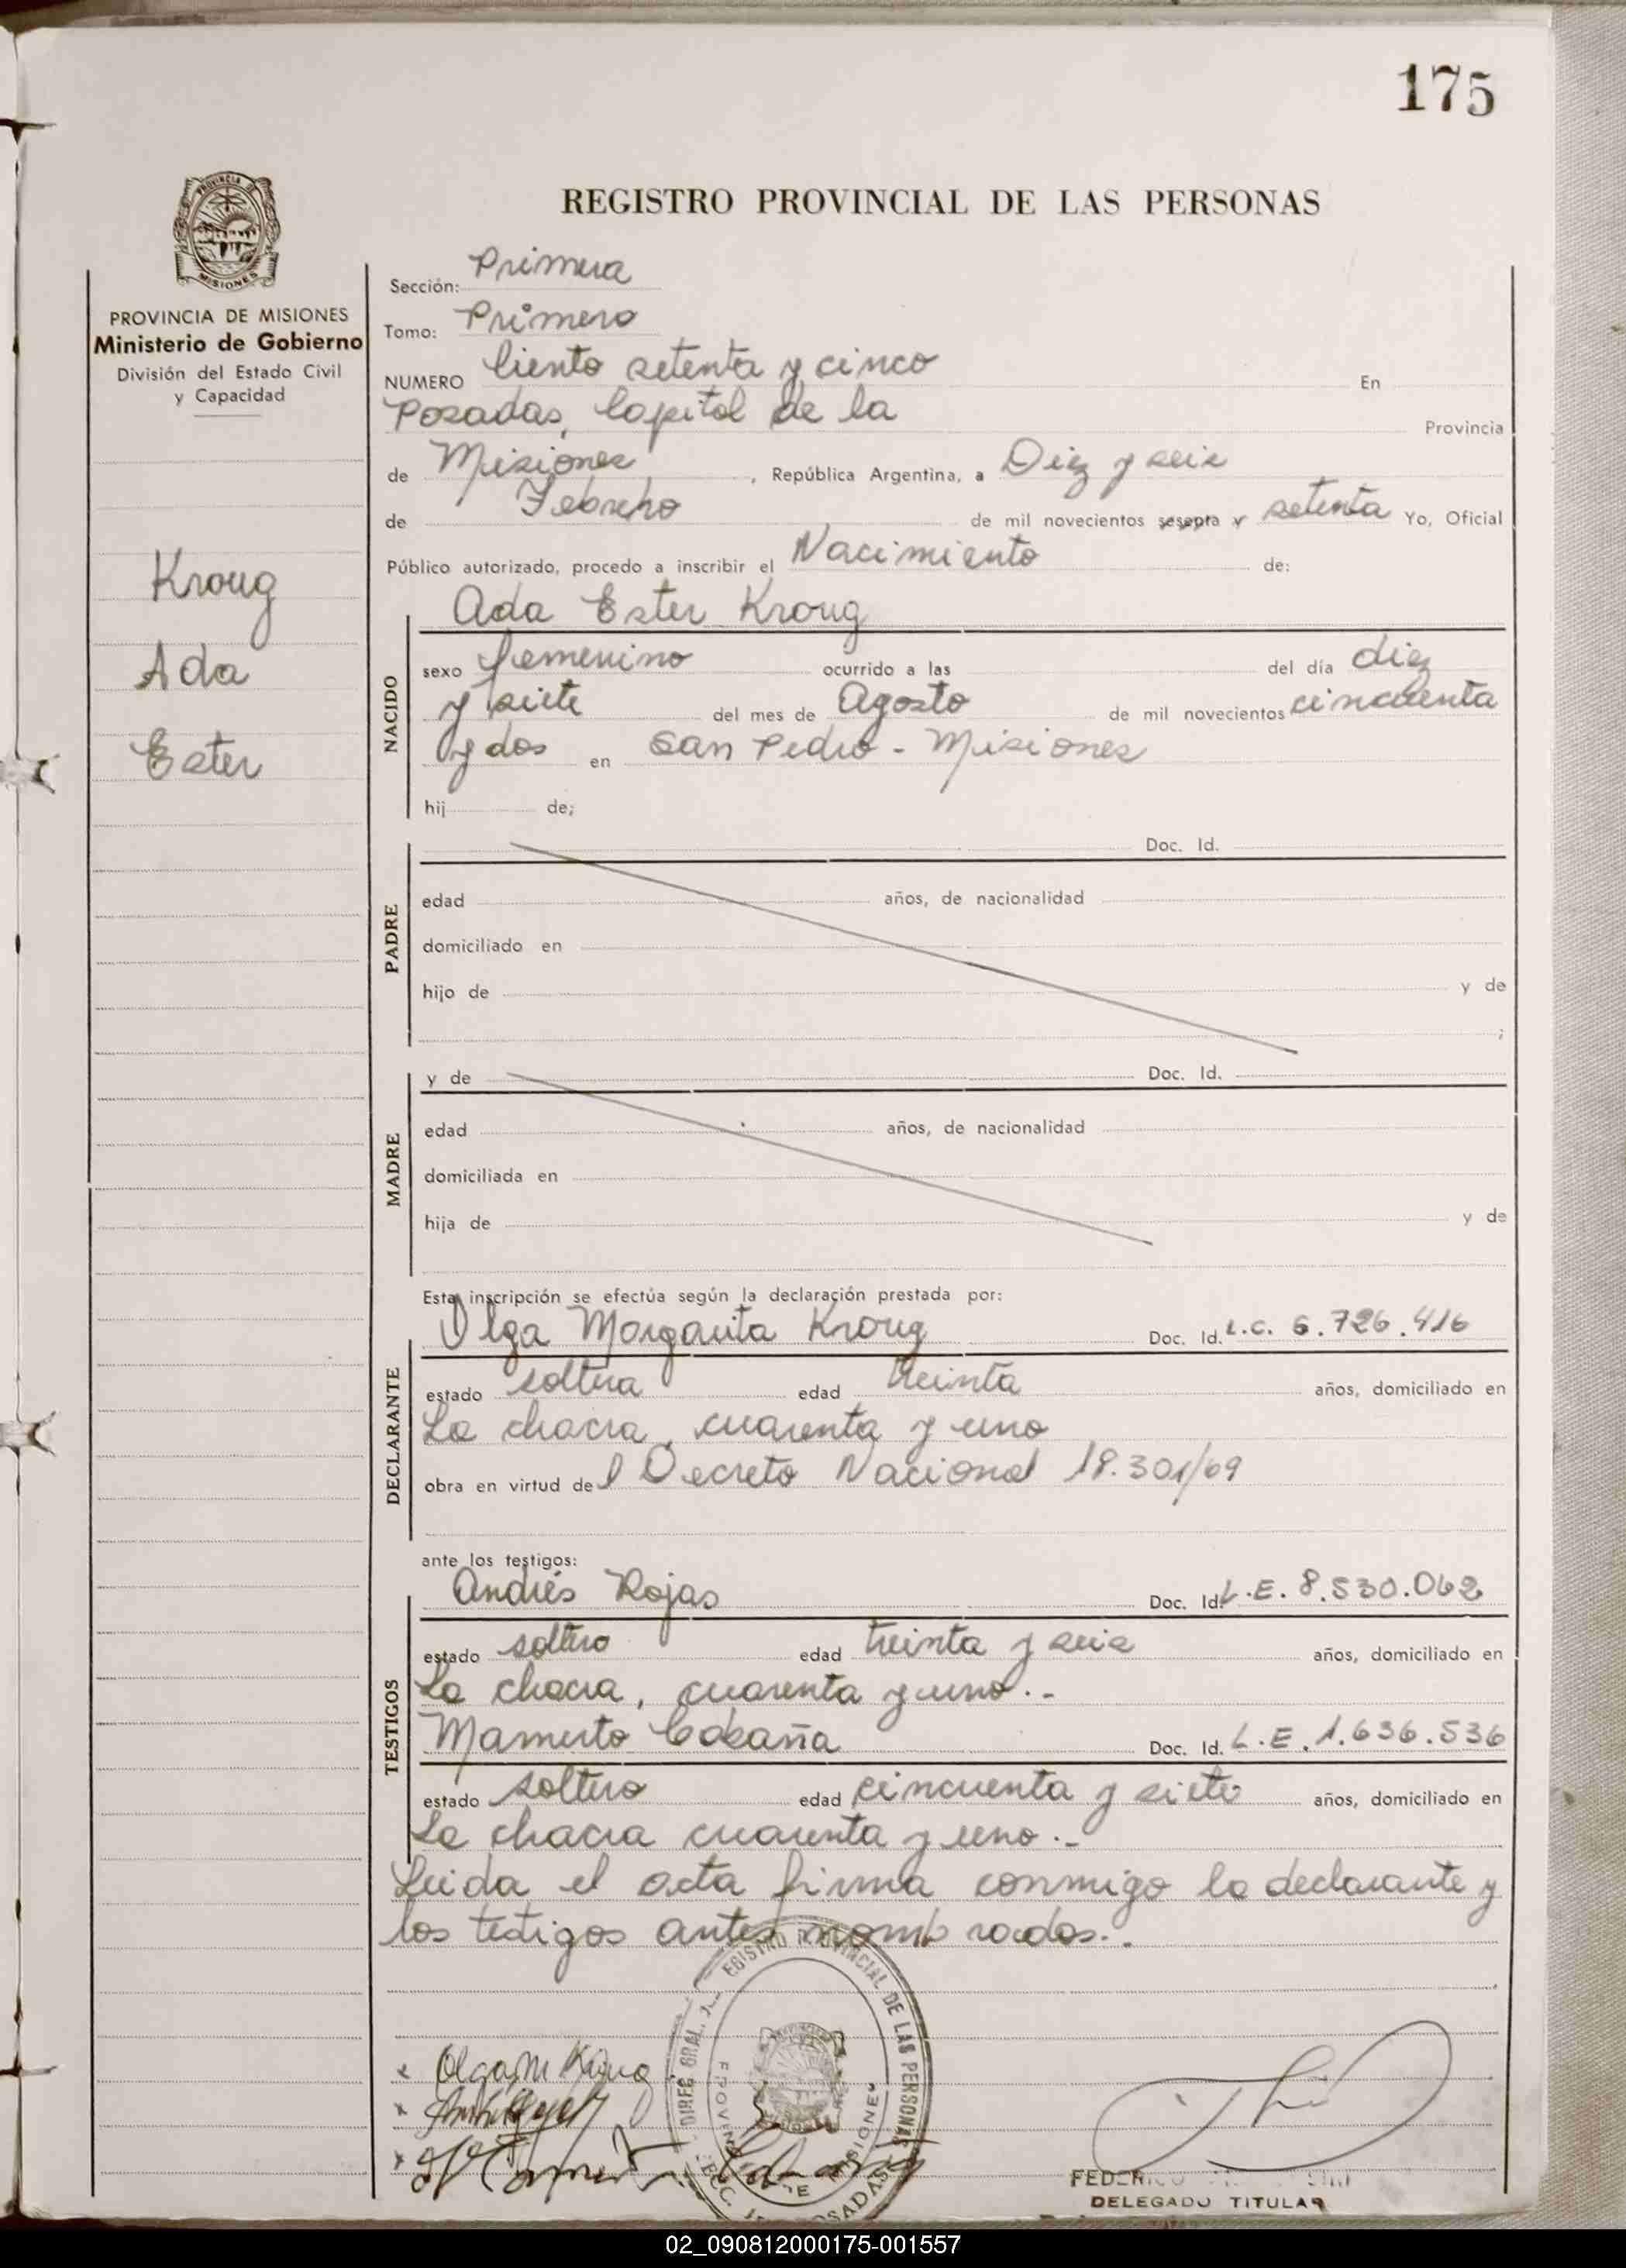 175
PROVINCIA DE
MISIONES
REGISTRO PROVINCIAL DE LAS PERSONAS
PROVINCIA DE MISIONES
Ministerio de Gobierno
División del Estado Civil
y Capacidad
Kroug
Ada
Ester
Sección: Primera
Tomo: Primero
NUMERO Ciento setenta y cinco En
Posadas, Capital de la Provincia
de Misiones, República Argentina, a Diez y seis
de Febrero de mil novecientos sesenta y setenta Yo, Oficial
Público autorizado, procedo a inscribir el Nacimiento de:
Ada Ester Kroug
NACIDO
sexo femenino ocurrido a las del día diez
y siete del mes de Agosto de mil novecientos cincuenta
y dos en San Pedro - Misiones
hij de;
PADRE
Doc. Id.
edad años, de nacionalidad
domiciliado en
hijo de y de
;
MADRE
y de Doc. Id.
edad años, de nacionalidad
domiciliada en
hija de y de
Esta inscripción se efectúa según la declaración prestada por:
DECLARANTE
Olga Margarita Kroug Doc. Id. L.C. 6.726.416
estado soltera edad treinta años, domiciliado en
La chacra, cuarenta y uno
obra en virtud del Decreto Nacional 18.301/69
ante los testigos:
TESTIGOS
Andrés Rojas Doc. Id. L.E. 8.530.062
estado soltero edad treinta y seis años, domiciliado en
La chacra, cuarenta y uno.-
Mamerto Cabaña Doc. Id. L.E. 1.636.536
estado soltero edad cincuenta y siete años, domiciliado en
La chacra cuarenta y uno.-
Leida el acta firma conmigo la declarante y
los testigos antes nombrados.-
x Olga M Kroug
x
x
DIREC. GRAL. REGISTRO PROVINCIAL DE LAS PERSONAS
PROVINCIA DE MISIONES
POSADAS
DELEGADO TITULAR
02_090812000175-001557